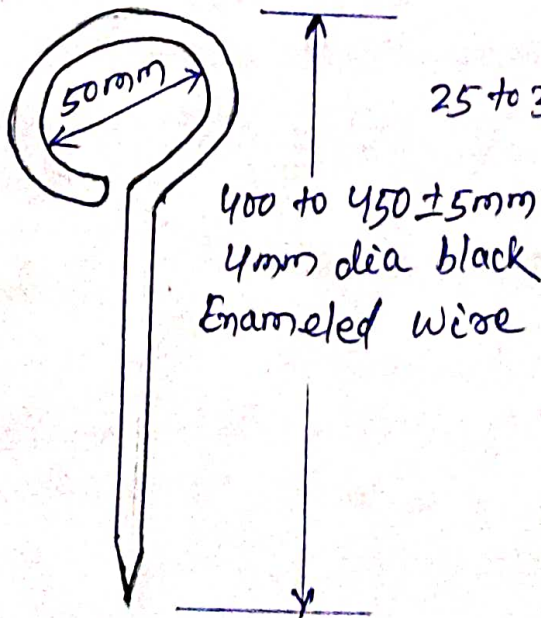 50mm
25 to
400 to 450 ±5mm
4mm dia black
Enameled wire